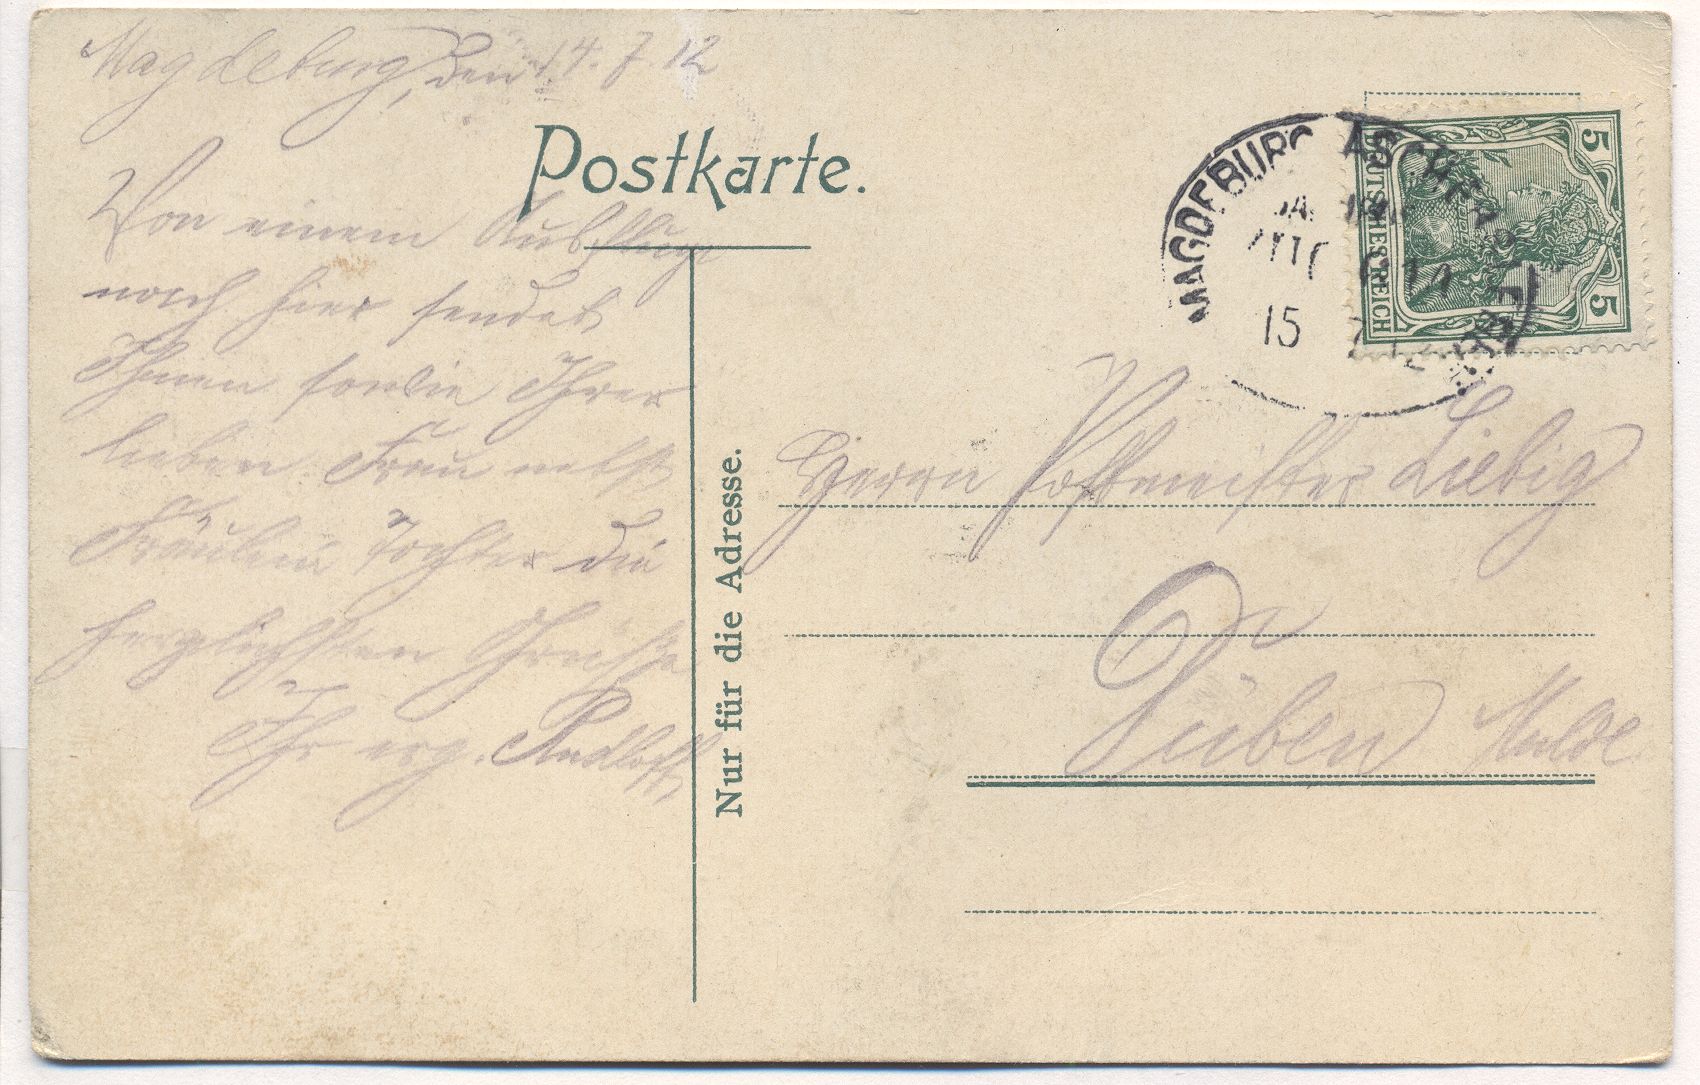 Magdeburg, den 14.7.12
Postkarte.
Von einem Ausflug
nach hier sendet
Ihnen sowie Ihrer
lieben Frau nebst
Fräulein Tochter die
herzlichsten Grüsse
Ihr erg. Radloff
Nur für die Adresse.
MAGDEBURG ASCHERSLEBEN
BAHNPOST
ZUG
15 7 12
DEUTSCHES REICH
5
5
Herrn Postmeister Liebig
Düben Mulde